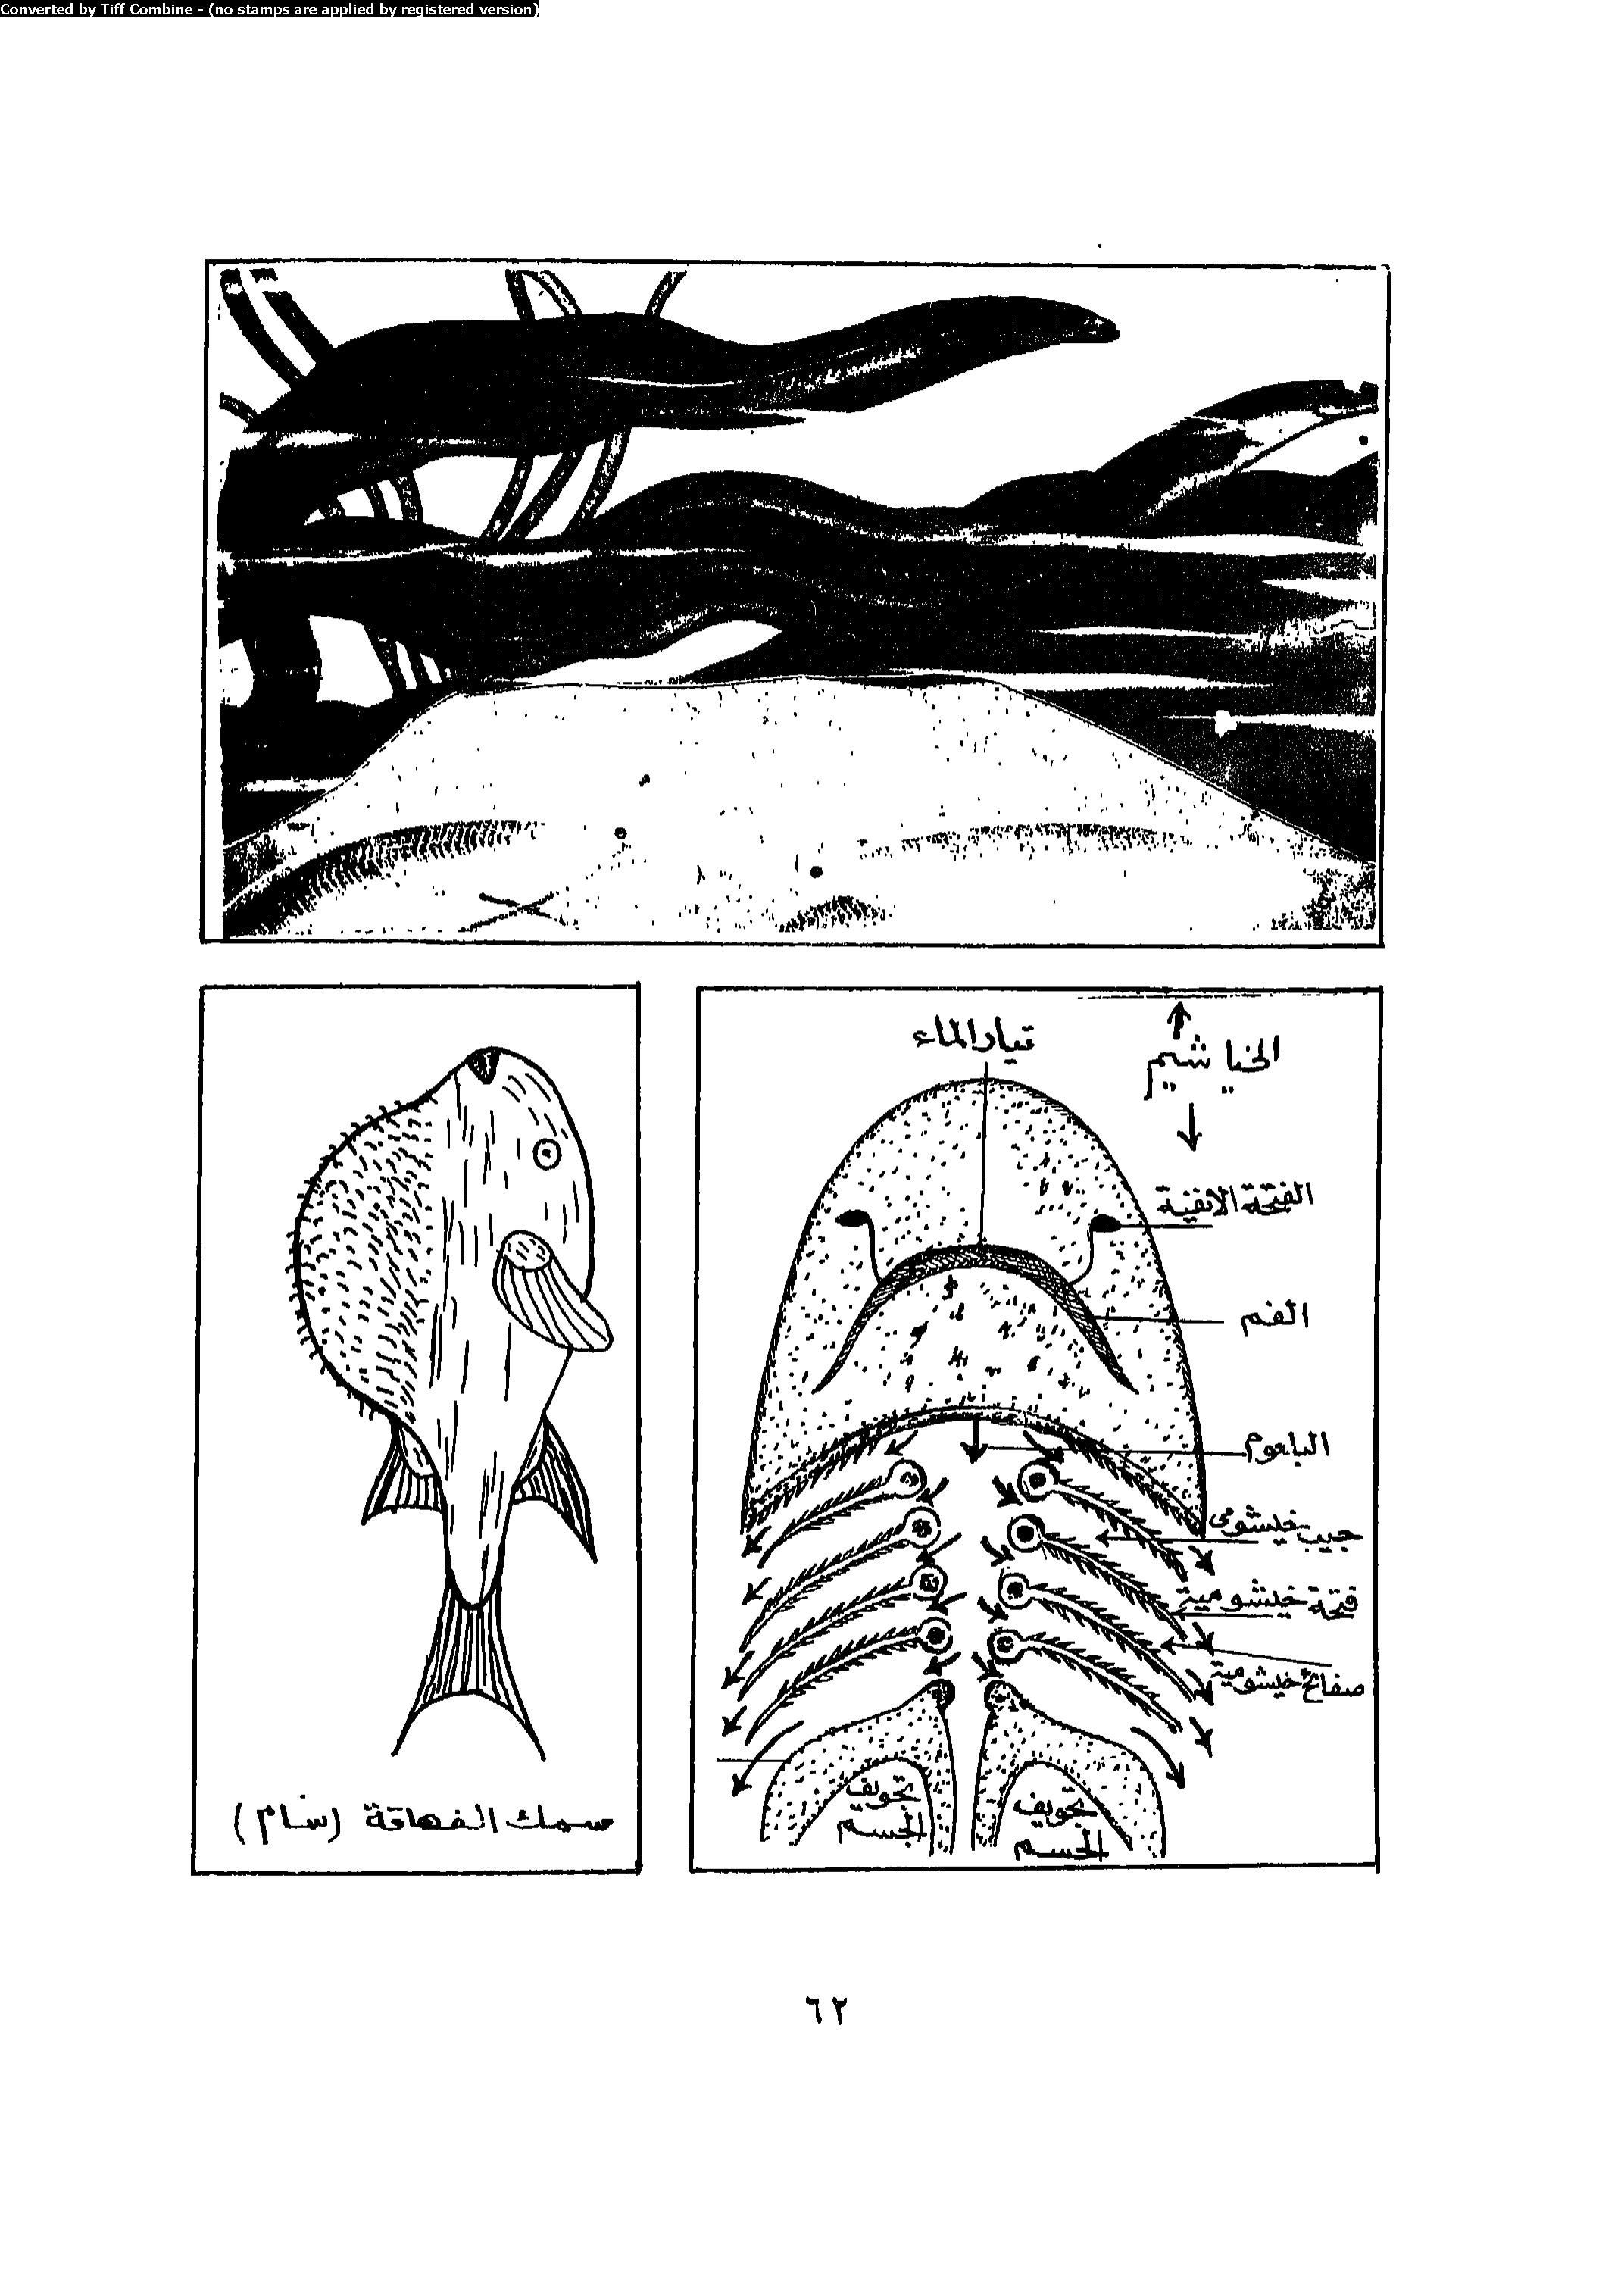 Converted by Tiff Combine - (no stamps are applied by registered version)
تيار الماء
الخياشيم
الفتحة الانفية
الفم
البلعوم
جيب خيشومى
فتحة خيشومية
صفائح خيشومية
تجويف
الجسم
تجويف
الجسم
سمك الفهاقة (سام)
٦٢